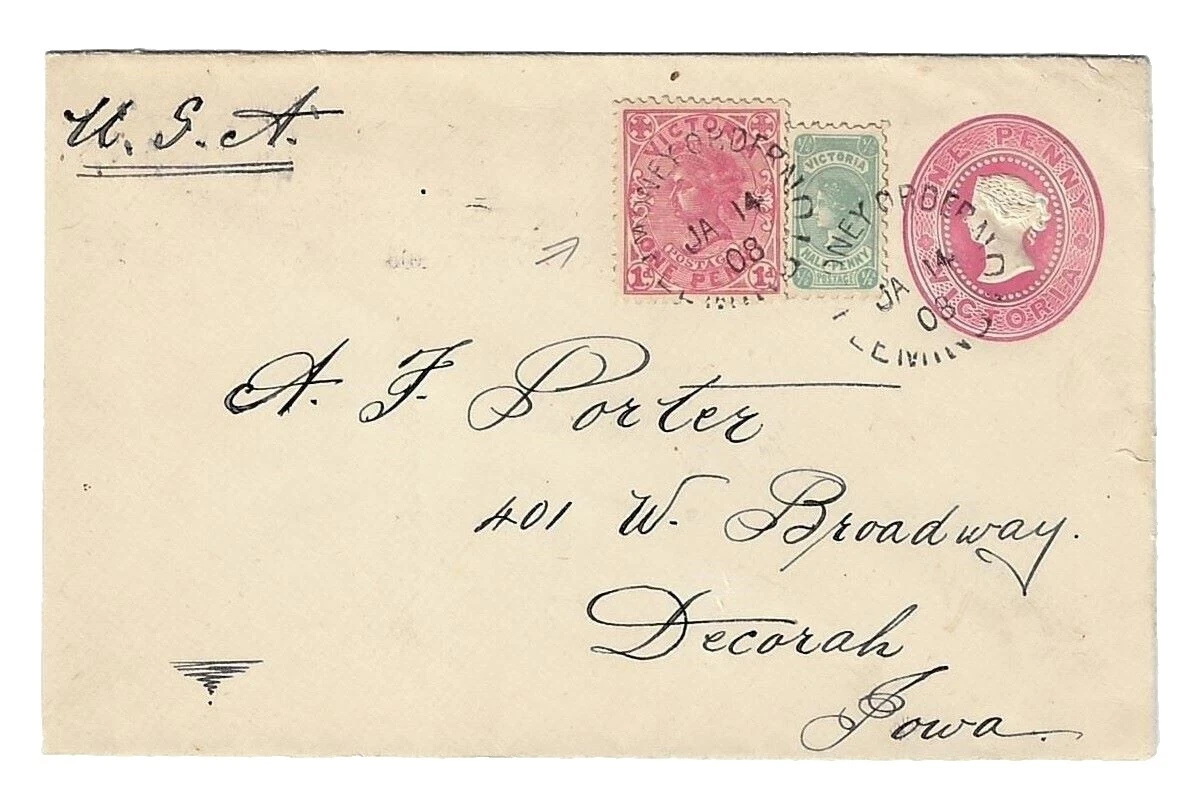 U. S. A.
VICTORIA
POSTAGE
1d ONE PENNY 1d
½ ½
VICTORIA
HALF-PENNY
½ POSTAGE ½
ONE PENNY
VICTORIA
MONEY ORDER N
JA 14
08
NEY ORDER N
JA 14
08
A. F. Porter
401 W. Broadway.
Decorah
Iowa.